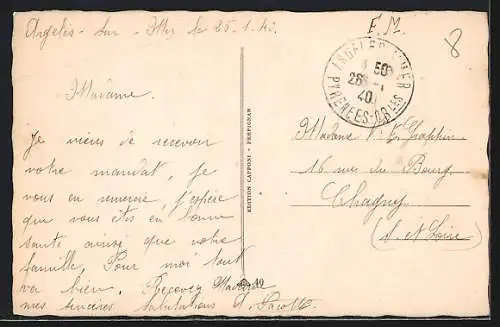 Argelès - sur - Mer le 26.1.40
F.M.
8
ARGELES S MER
50
26 - 1
40
PYRENEES-ORles
Madame.
Je viens de recevoir
votre mandat, je
vous en remercie, j'espère
que vous êtes en bonne
santé ainsi que votre
famille. Pour moi tout
va bien. Recevez Madame
mes sincères salutations
EDITION CAPPONI - PERPIGNAN
Madame V.
16 rue du Bourg
Chagny
(S. et Loire)